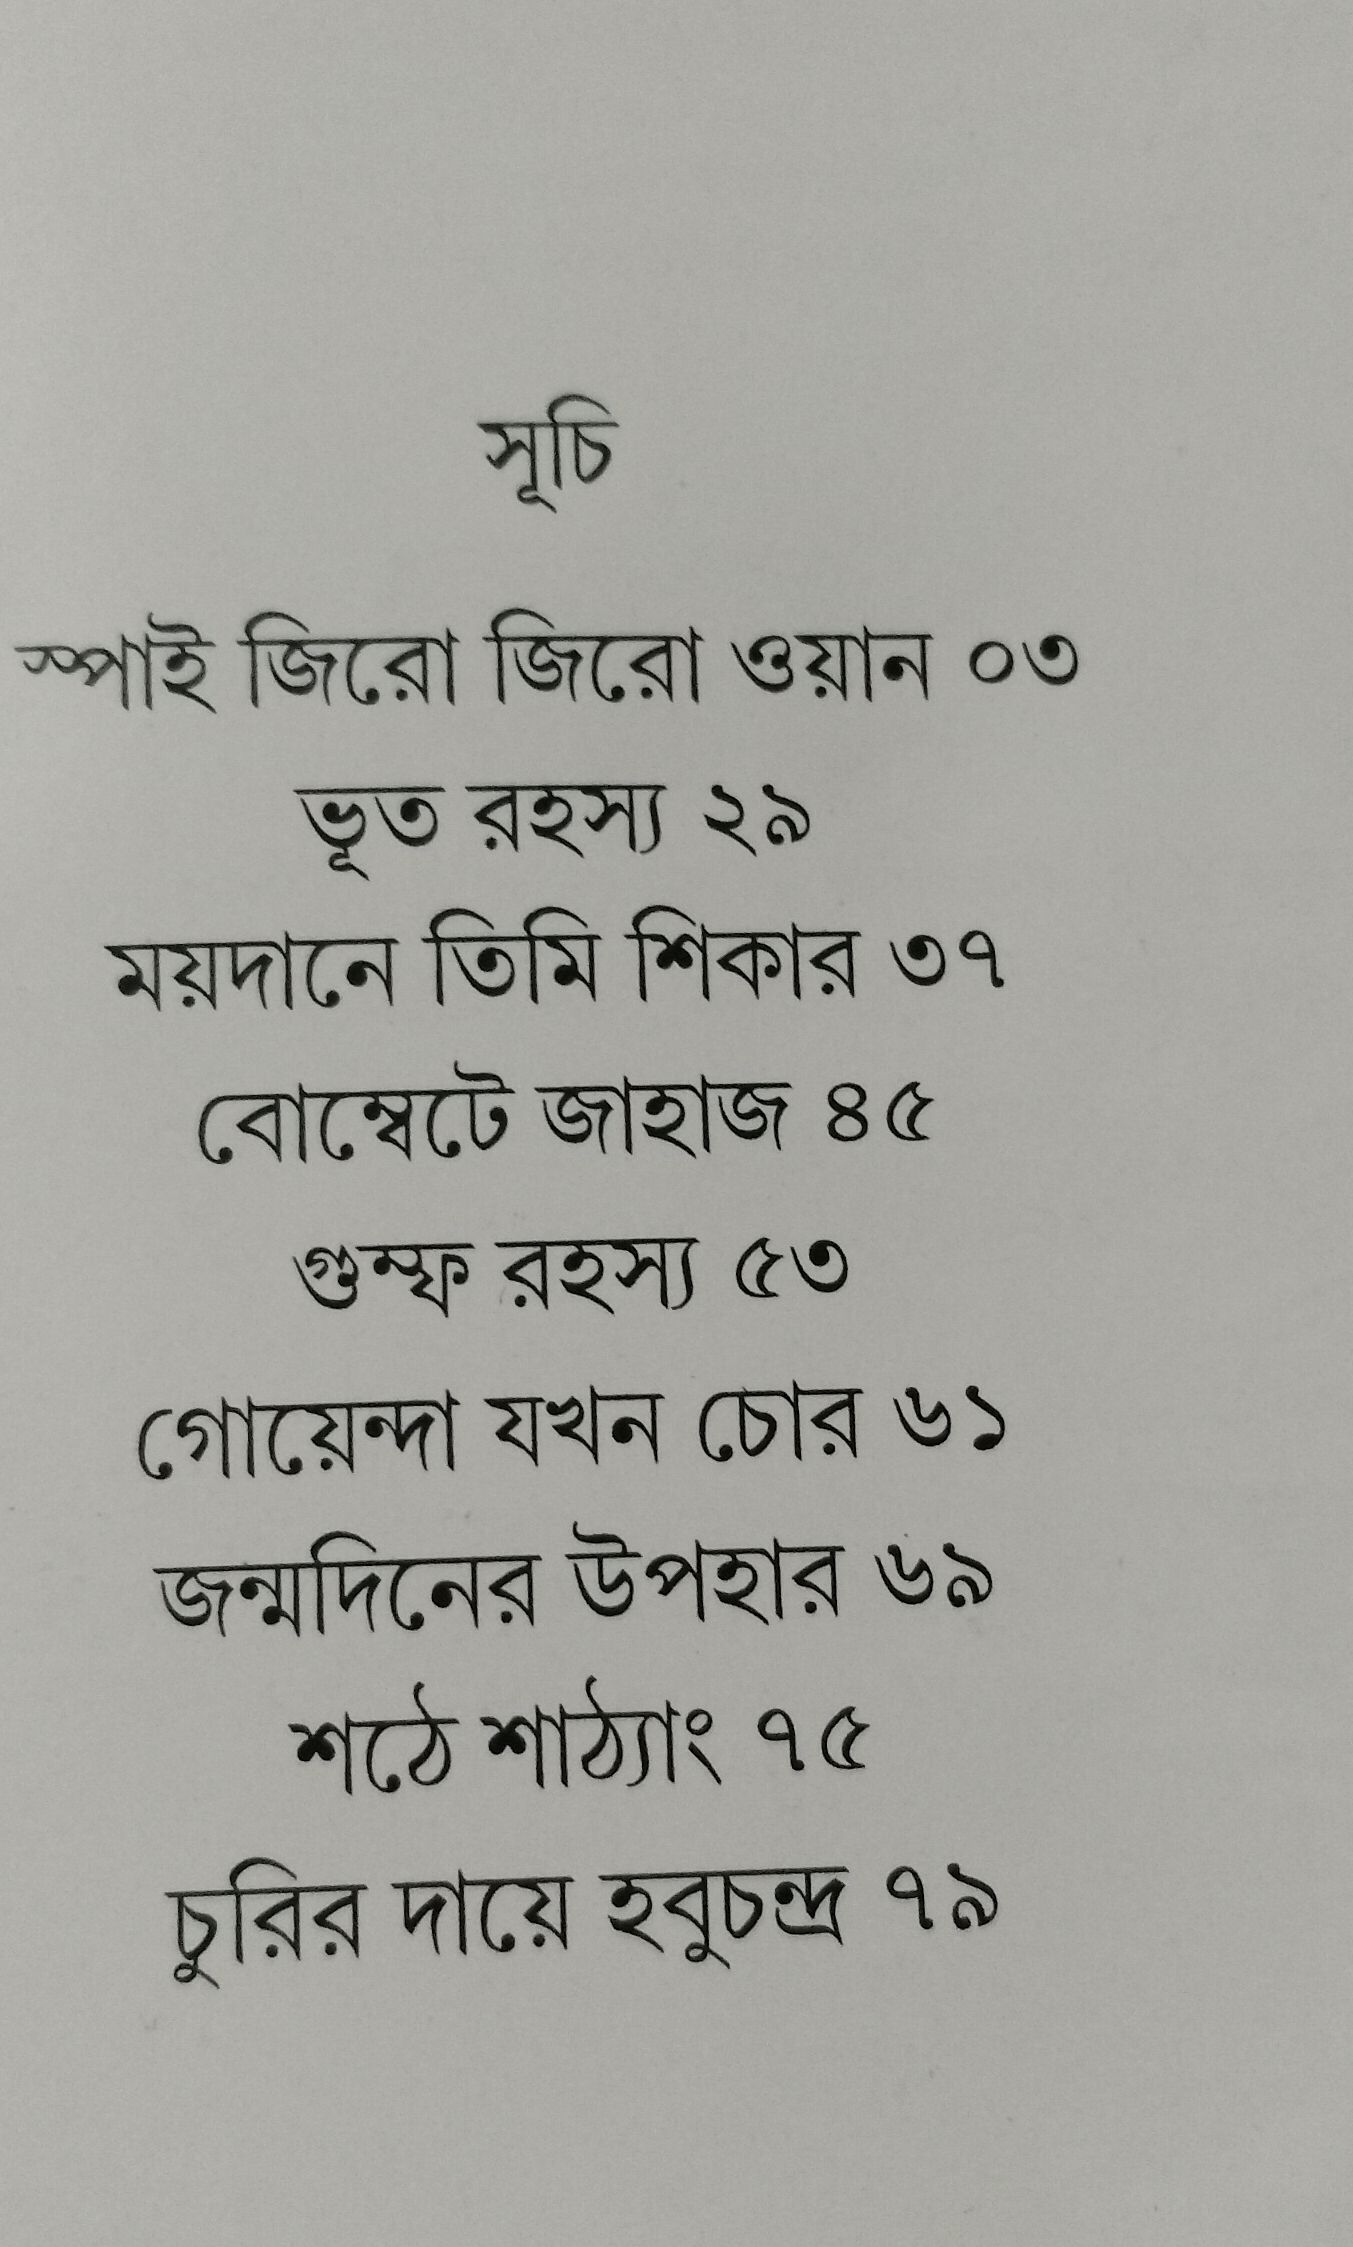 সূচি
স্পাই জিরো জিরো ওয়ান ০৩
ভূত রহস্য ২৯
ময়দানে তিমি শিকার ৩৭
বোম্বেটে জাহাজ ৪৫
গুম্ফ রহস্য ৫৩
গোয়েন্দা যখন চোর ৬১
জন্মদিনের উপহার ৬৯
শঠে শাঠ্যাং ৭৫
চুরির দায়ে হবুচন্দ্র ৭৯